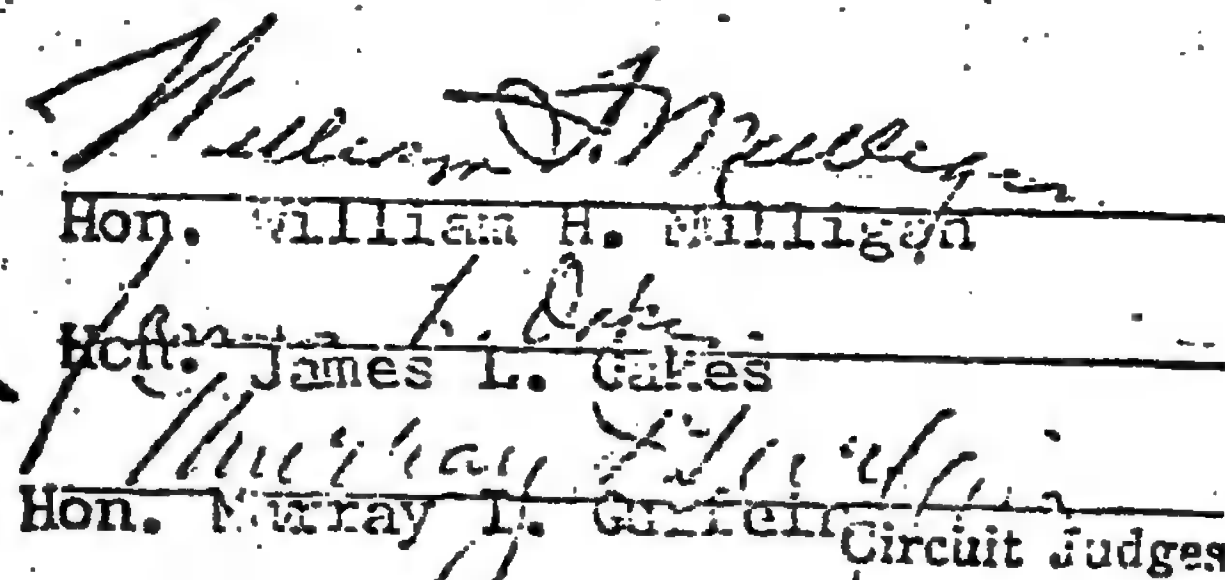 William H. Mulligan
Hon. William H. Mulligan
James L. Oakes
Hon. James L. Oakes
Murray Gurfein
Hon. Murray I. Gurfein
Circuit Judges